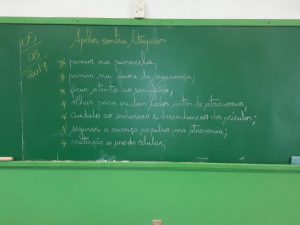 05
08
2019
Ações contra Atropelos
* passar na passarela;
* passar na faixa de segurança;
* ficar atento ao semáforo;
* olhar para os dois lados antes de atravessar;
* cuidado ao embarcar e desembarcar dos veículos;
* segurar a criança no pulso para atravessar;
* restrição ao uso do celular;